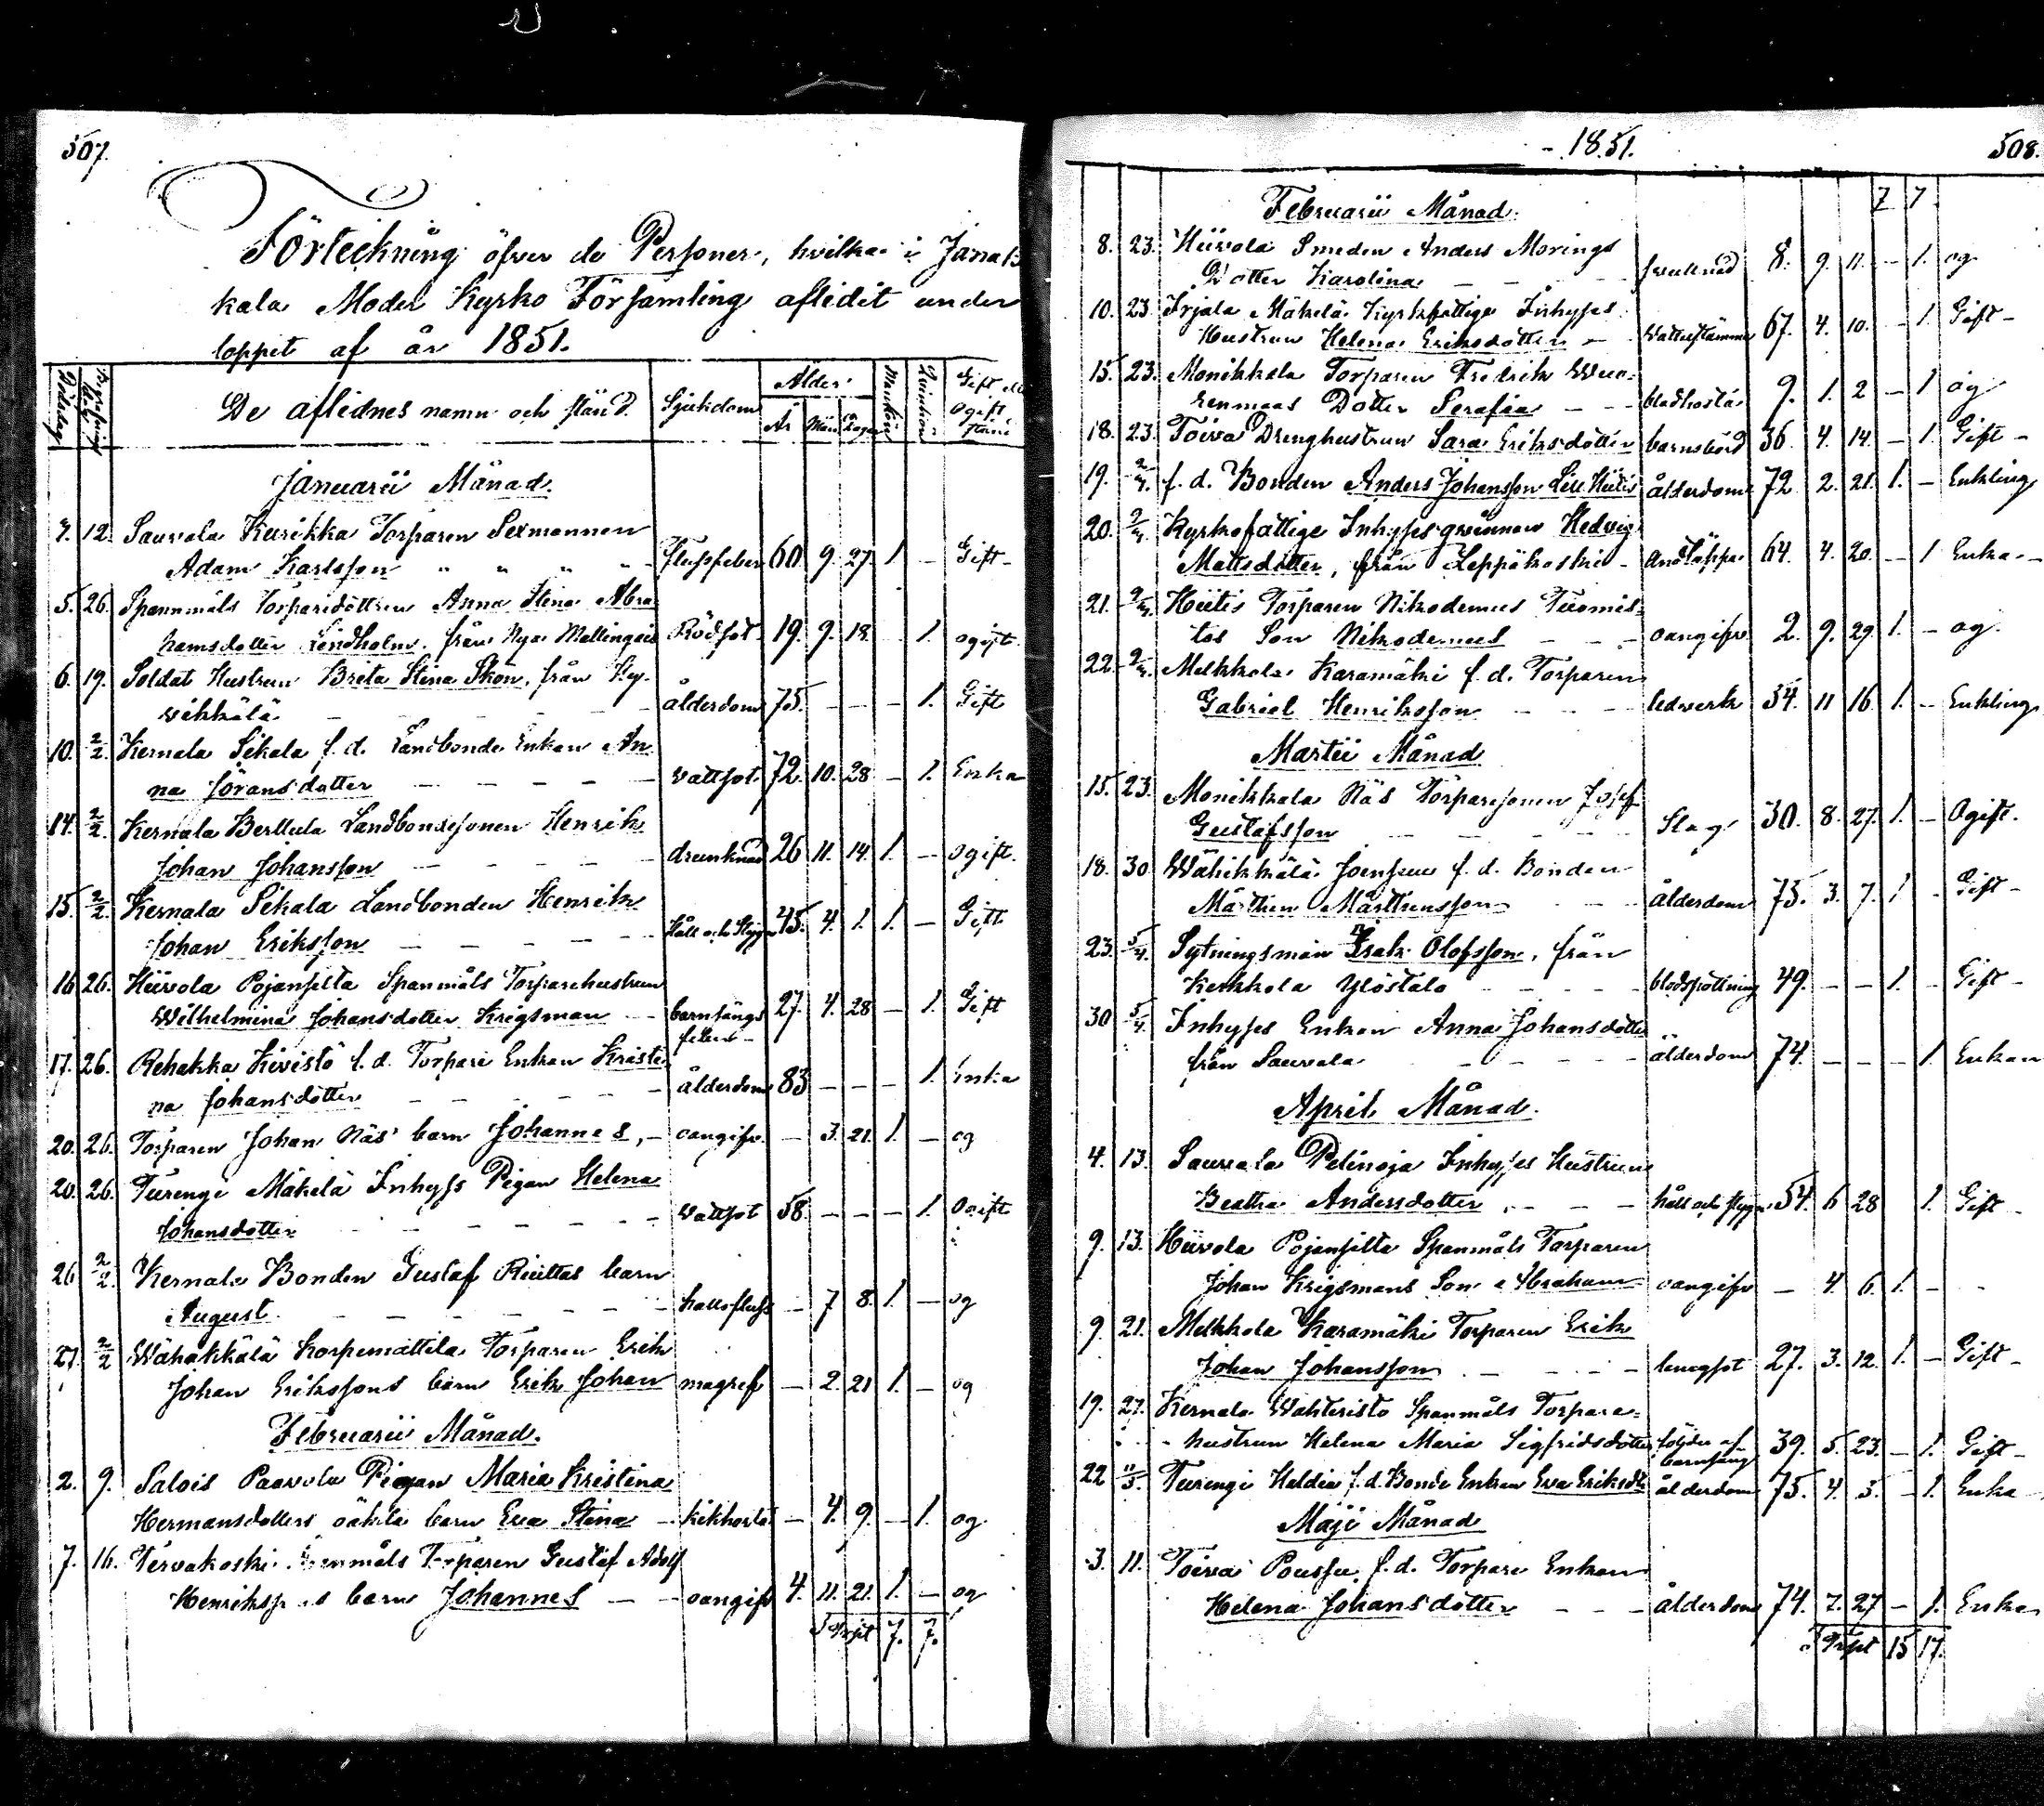 507.
Förteckning öfver de Personer, hvilka i Janak
kala Moder Kyrko Församling aflidit under
loppet af år 1851.
Dödsdag Begrafning De aflidnes namn och stånd. Sjukdom Ålder År Mån Dagar Mankön Qvinkön Gift Ogift
Januarii Månad.
7. 12. Sauvala Kurikka Torparen Sexmannen
Adam Karlsson " " " " Flussfeber 60 9. 27. 1. — Gift
5. 26. Spannmåls Torparedottren Anna Stina Abra
hamsdotter Lindholm, från Nya Mallingais Rödsot 19. 9. 18. 1. ogift.
6. 19. Soldat Hustrun Brita Stina Skön, från Hy-
vikkälä — ålderdom 75. — — — 1. Gift
10. 2/2. Kernala Sikala f.d. Landbonde Enkan An
na Göransdotter — vattsot. 72. 10. 28 — 1. Enka
14. 2/2. Kernala Berttula Landbondesonen Henrik
Johan Johansson — drunknad 26 11. 14. 1. — ogift.
15. 2/2. Kernala Sikala Landbonden Henrik
Johan Eriksson — Håll och Stygn 45. 4. 1. 1. — Gift
16 26. Hiivola Pojansilta Spanmåls Torparehustrun
Wilhelmina Johansdotter Krigsman — barnsängs 27. 4. 28 — 1. Gift
feber
17. 26. Rehakka Kivistö f.d. Torpare Enkan Kristi
na Johansdotter — ålderdom 83 — — — 1. Enka
20. 26. Torparen Johan Näs' barn Johannes, — oangifv. — 3. 21. 1. — og
20. 26. Turengi Mäkelä Inhyss Pigan Helena
Johansdotter — vattsot 58. — — — 1. Ogift
26 2/2. Kernala Bonden Gustaf Riuttas barn
August — halsfluss — 7 8. 1. — og
27. 2/2 Wähikkälä Korpimattila Torparen Erik
Johan Erikssons barn Erik Johan magref — 2. 21 1. — og
Februarii Månad.
2. 9. Salois Paavola Pigan Maria Kristina
Hermansdotters oäkta barn Eva Stina — kikhosta — 4. 9. — 1. og.
7. 16. Tervakoski Spanmåls Torparen Gustaf Adolf
Henrikssons barn Johannes — oangifv 4. 11. 21. 1. — og
Trspt 7. 7.
- 1851. 508.
Februarii Månad. 7 7.
8. 23. Hiivola Smeden Anders Morings
Dotter Karolina — 8. 9. 11. — 1. og
10. 23 Irjala Mäkelä Kyrkofattige Inhyses
Hustrun Helena Eriksdotter — 67. 4. 10. — 1. Gift -
15. 23. Monikkala Torparen Fredrik Wuo-
renmaas Dotter Serafia — bladhosta 9. 1. 2 — 1 og
18. 23. Toiva Drenghustrun Sara Eriksdotter barnsbörd 36 4. 14. — 1. Gift -
19. f.d. Bonden Anders Johansson Lill Hiitis ålderdom 72. 2. 21. 1. — Enkling
20. Kyrkofattige Inhyses qvinnan Hedvig
Mattsdotter, från Leppäkoski - andtäppa 64. 4. 20. — 1 Enka -
21. Hiitis Torparen Nikodemus Tuomis-
tos Son Nikodemus — oangifv. 2. 9. 29. 1. — og.
22. Melkkola Karamäki f.d. Torparen
Gabriel Henriksson — ledverk 34. 11 16 1. — Enkling
Martii Månad
15. 23. Monikkala Näs Torparesonen Josef
Gustafsson — Slag 30. 8. 27. 1. — Ogift.
18. 30 Wähikkälä Joensuu f.d. Bonden
Mårthen Mårthensson — ålderdom 75. 3. 7. 1 - Gift -
23. 5/4. Sytningsman Isak Olofsson, från
Kerkkola Ylöstalo — blodspottning 49. — — 1. - Gift -
30 5/4. Inhyses Enkan Anna Johansdotter
från Sauvala — ålderdom 74. — — — 1. Enkan
April Månad.
4. 13. Sauvala Pelinoja Inhyses Hustrun
Beatha Andersdotter — håll och stygn 54. 6 28 1. Gift -
9. 13. Hiivola Pojansilta Spanmåls Torparen
Johan Krigsmans Son Abraham oangifv — 4. 6. 1. —
9. 21. Melkkola Karamäki Torparen Erik
Johan Johansson — lungsot 27. 3. 12. 1. — Gift -
19. 27. Kernala Wahteristo Spanmåls Torpare-
hustrun Helena Maria Sigfridsdotter följder af 39. 5. 23. — 1. Gift -
barnsäng
22 11/5. Turengi Heldia f.d. Bonde Enkan Eva Eriksdtr ålderdom 75. 4. 5. — 1. Enka
Maji Månad
3. 11. Toiva Poussu f.d. Torpare Enkan
Helena Johansdotter — ålderdom 74. 7. 27 — 1. Enka
Trspt 15 17.